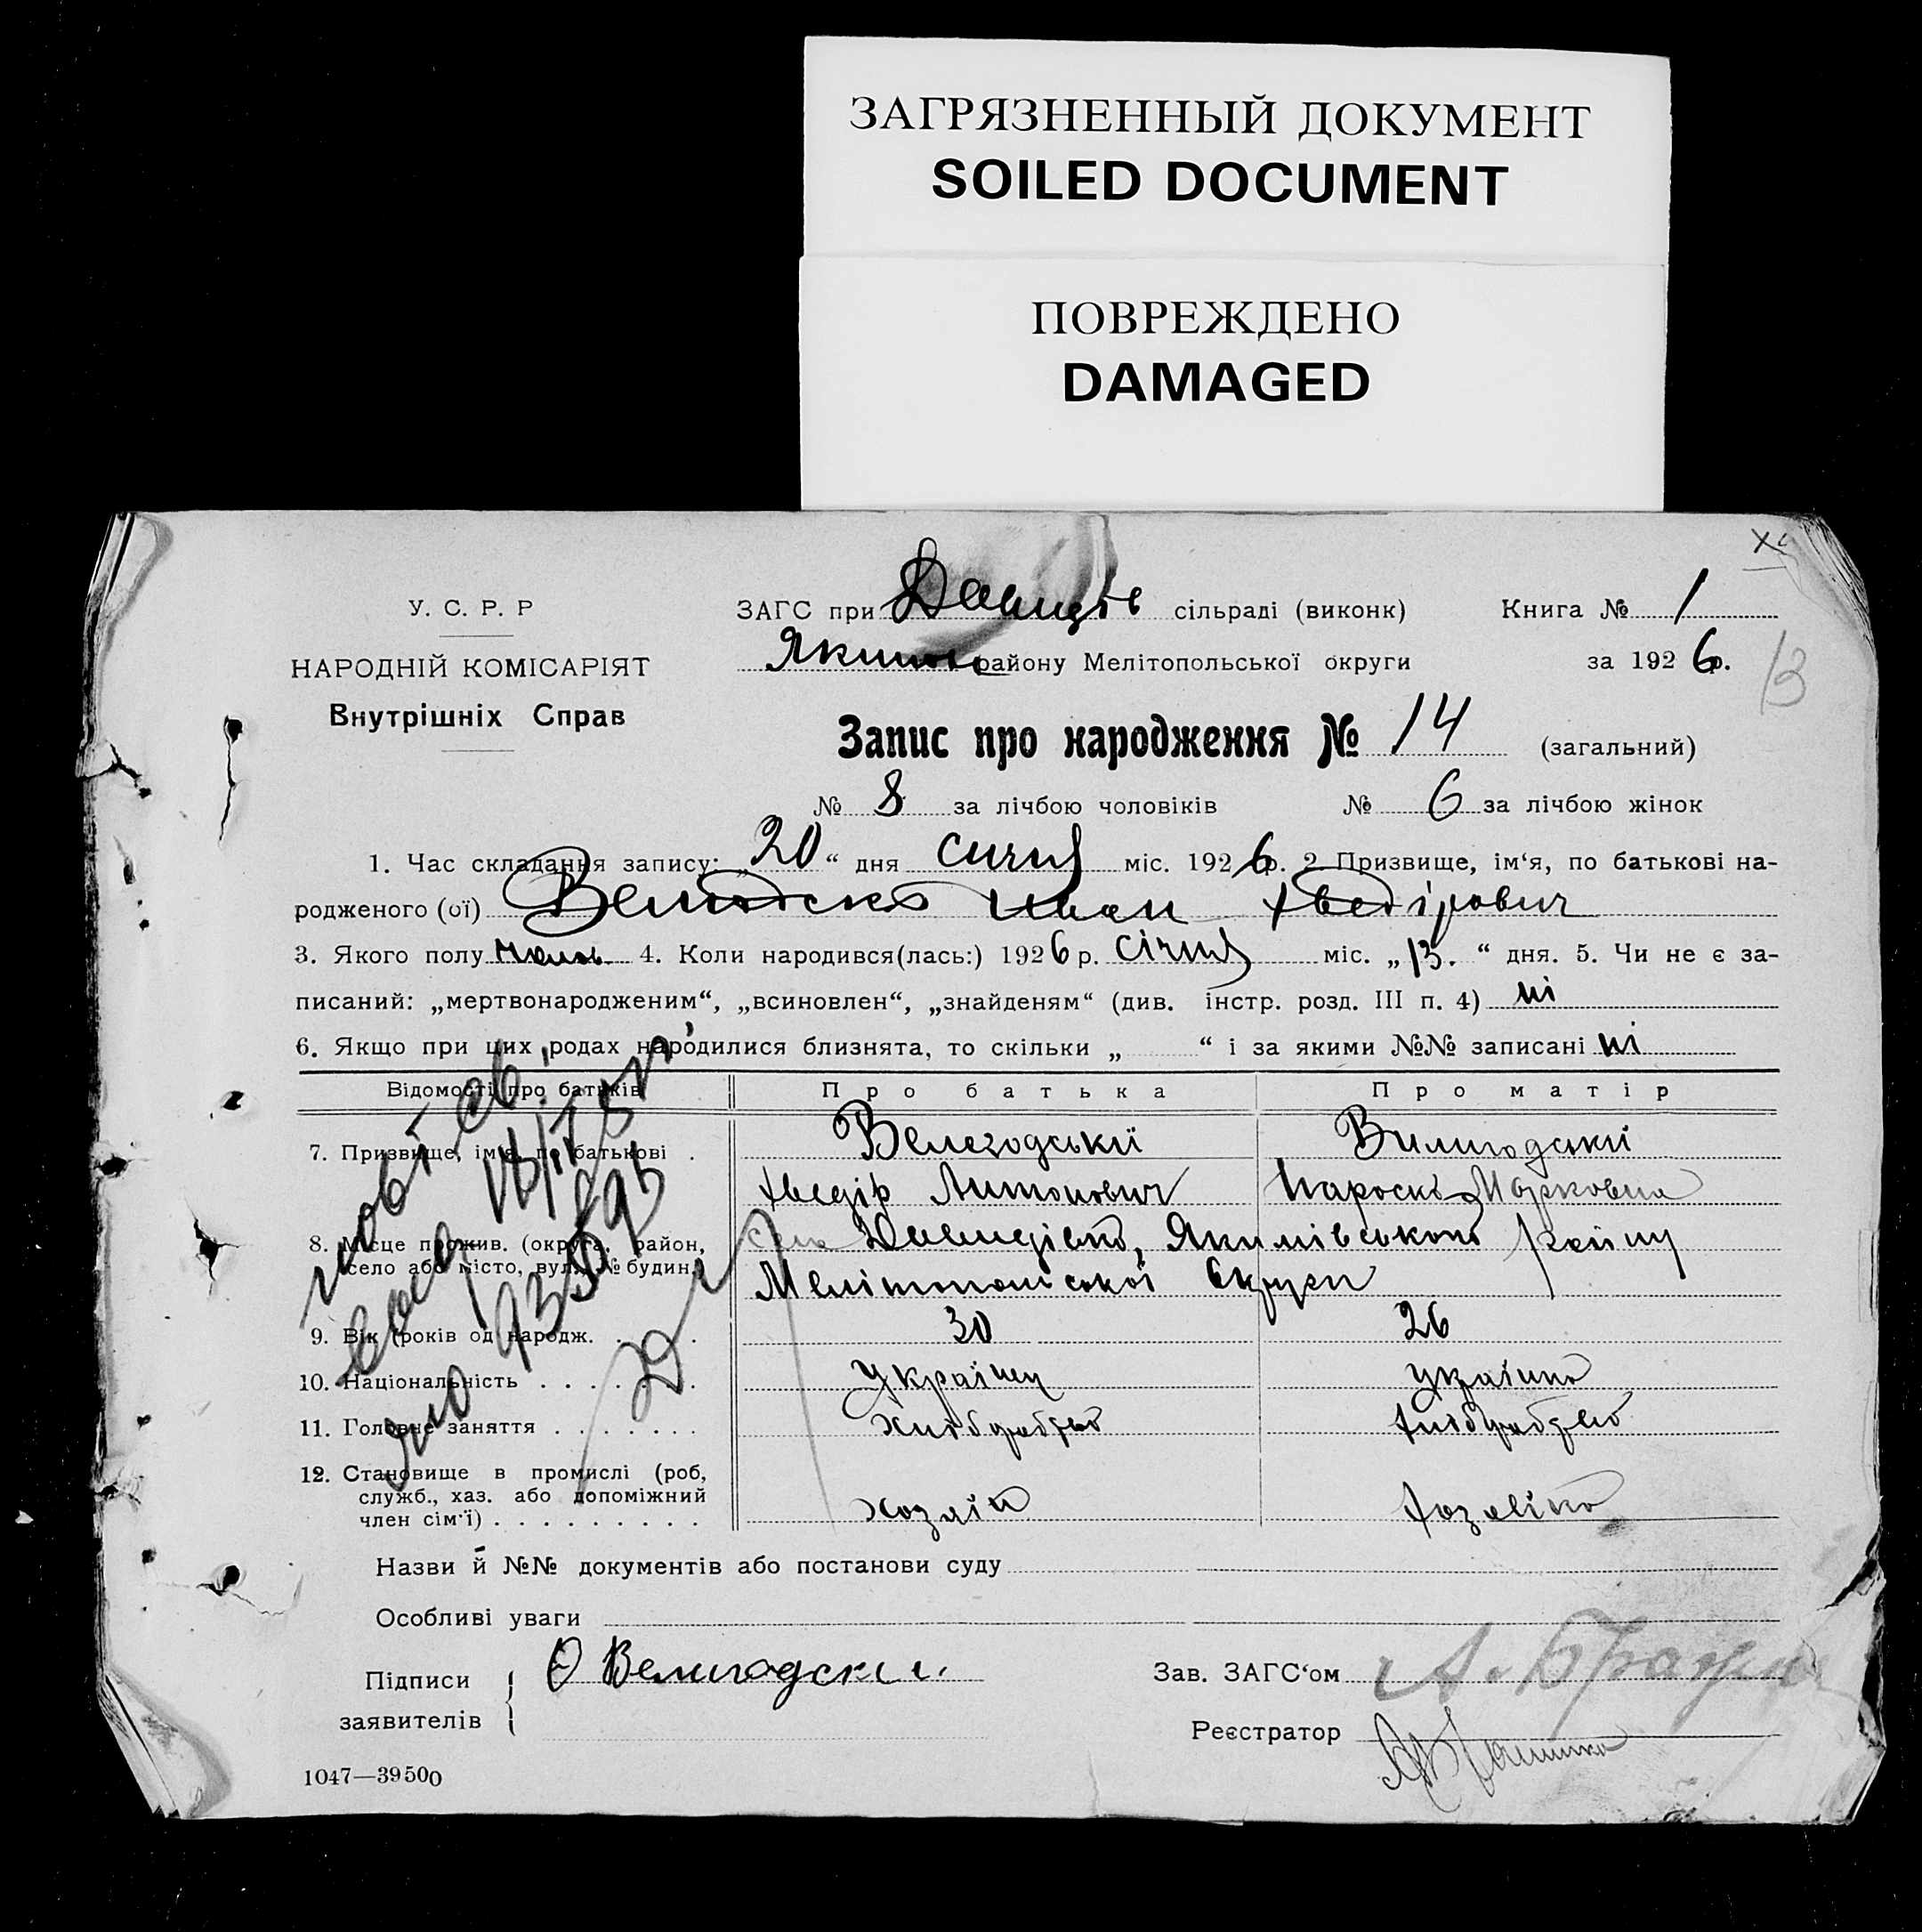 ЗАГРЯЗНЕННЫЙ ДОКУМЕНТ
SOILED DOCUMENT
ПОВРЕЖДЕНО
DAMAGED
У. С. Р. Р
НАРОДНІЙ КОМІСАРІЯТ
Внутрішніх Справ
ЗАГС при Давидів сільраді (виконк) Книга № 1
Якимов району Мелітопольської округи за 1926р.
13
Запис про народження № 14 (загальний)
№ 8 за лічбою чоловіків № 6 за лічбою жінок
1. Час складання запису: „20“ дня сичня міс. 1926р. 2 Призвище, ім‘я, по батькові на-
родженого (ої) Иван Хведірович
3. Якого полу 4. Коли народився(лась:) 1926р. січня міс. „13.“ дня. 5. Чи не є за-
писаний: „мертвонародженим“, „всиновлен“, „знайденям“ (див. інстр. розд. III п. 4) ні
6. Якщо при цих родах народилися близнята, то скільки „ “ і за якими №№ записані ні
Відомості про батьків Про батька Про матір
7. Призвище, ім‘я, по батькові . Велегодський Вилигодський
Хведір Антонович Марковна
8. Місце прожив. (округа, район, село або місто, вул., № будин.) село Давидівка, Якимівського Району
Мелітопольської Округи
9. Вік (років од народж. . . . 30 26
10. Національність . . . . . . . Українец Українка
11. Головне заняття . . . . . . . Хліборобство Хліборобство
12. Становище в промислі (роб,
служб., хаз. або допоміжний
член сім‘ї) . . . . . . . . . Хозяїн Хозяйка
Назви й №№ документів або постанови суду
Особливі уваги
Підписи
заявителів
Велигодский
Зав. ЗАГС‘ом
Реєстратор
1047—39500